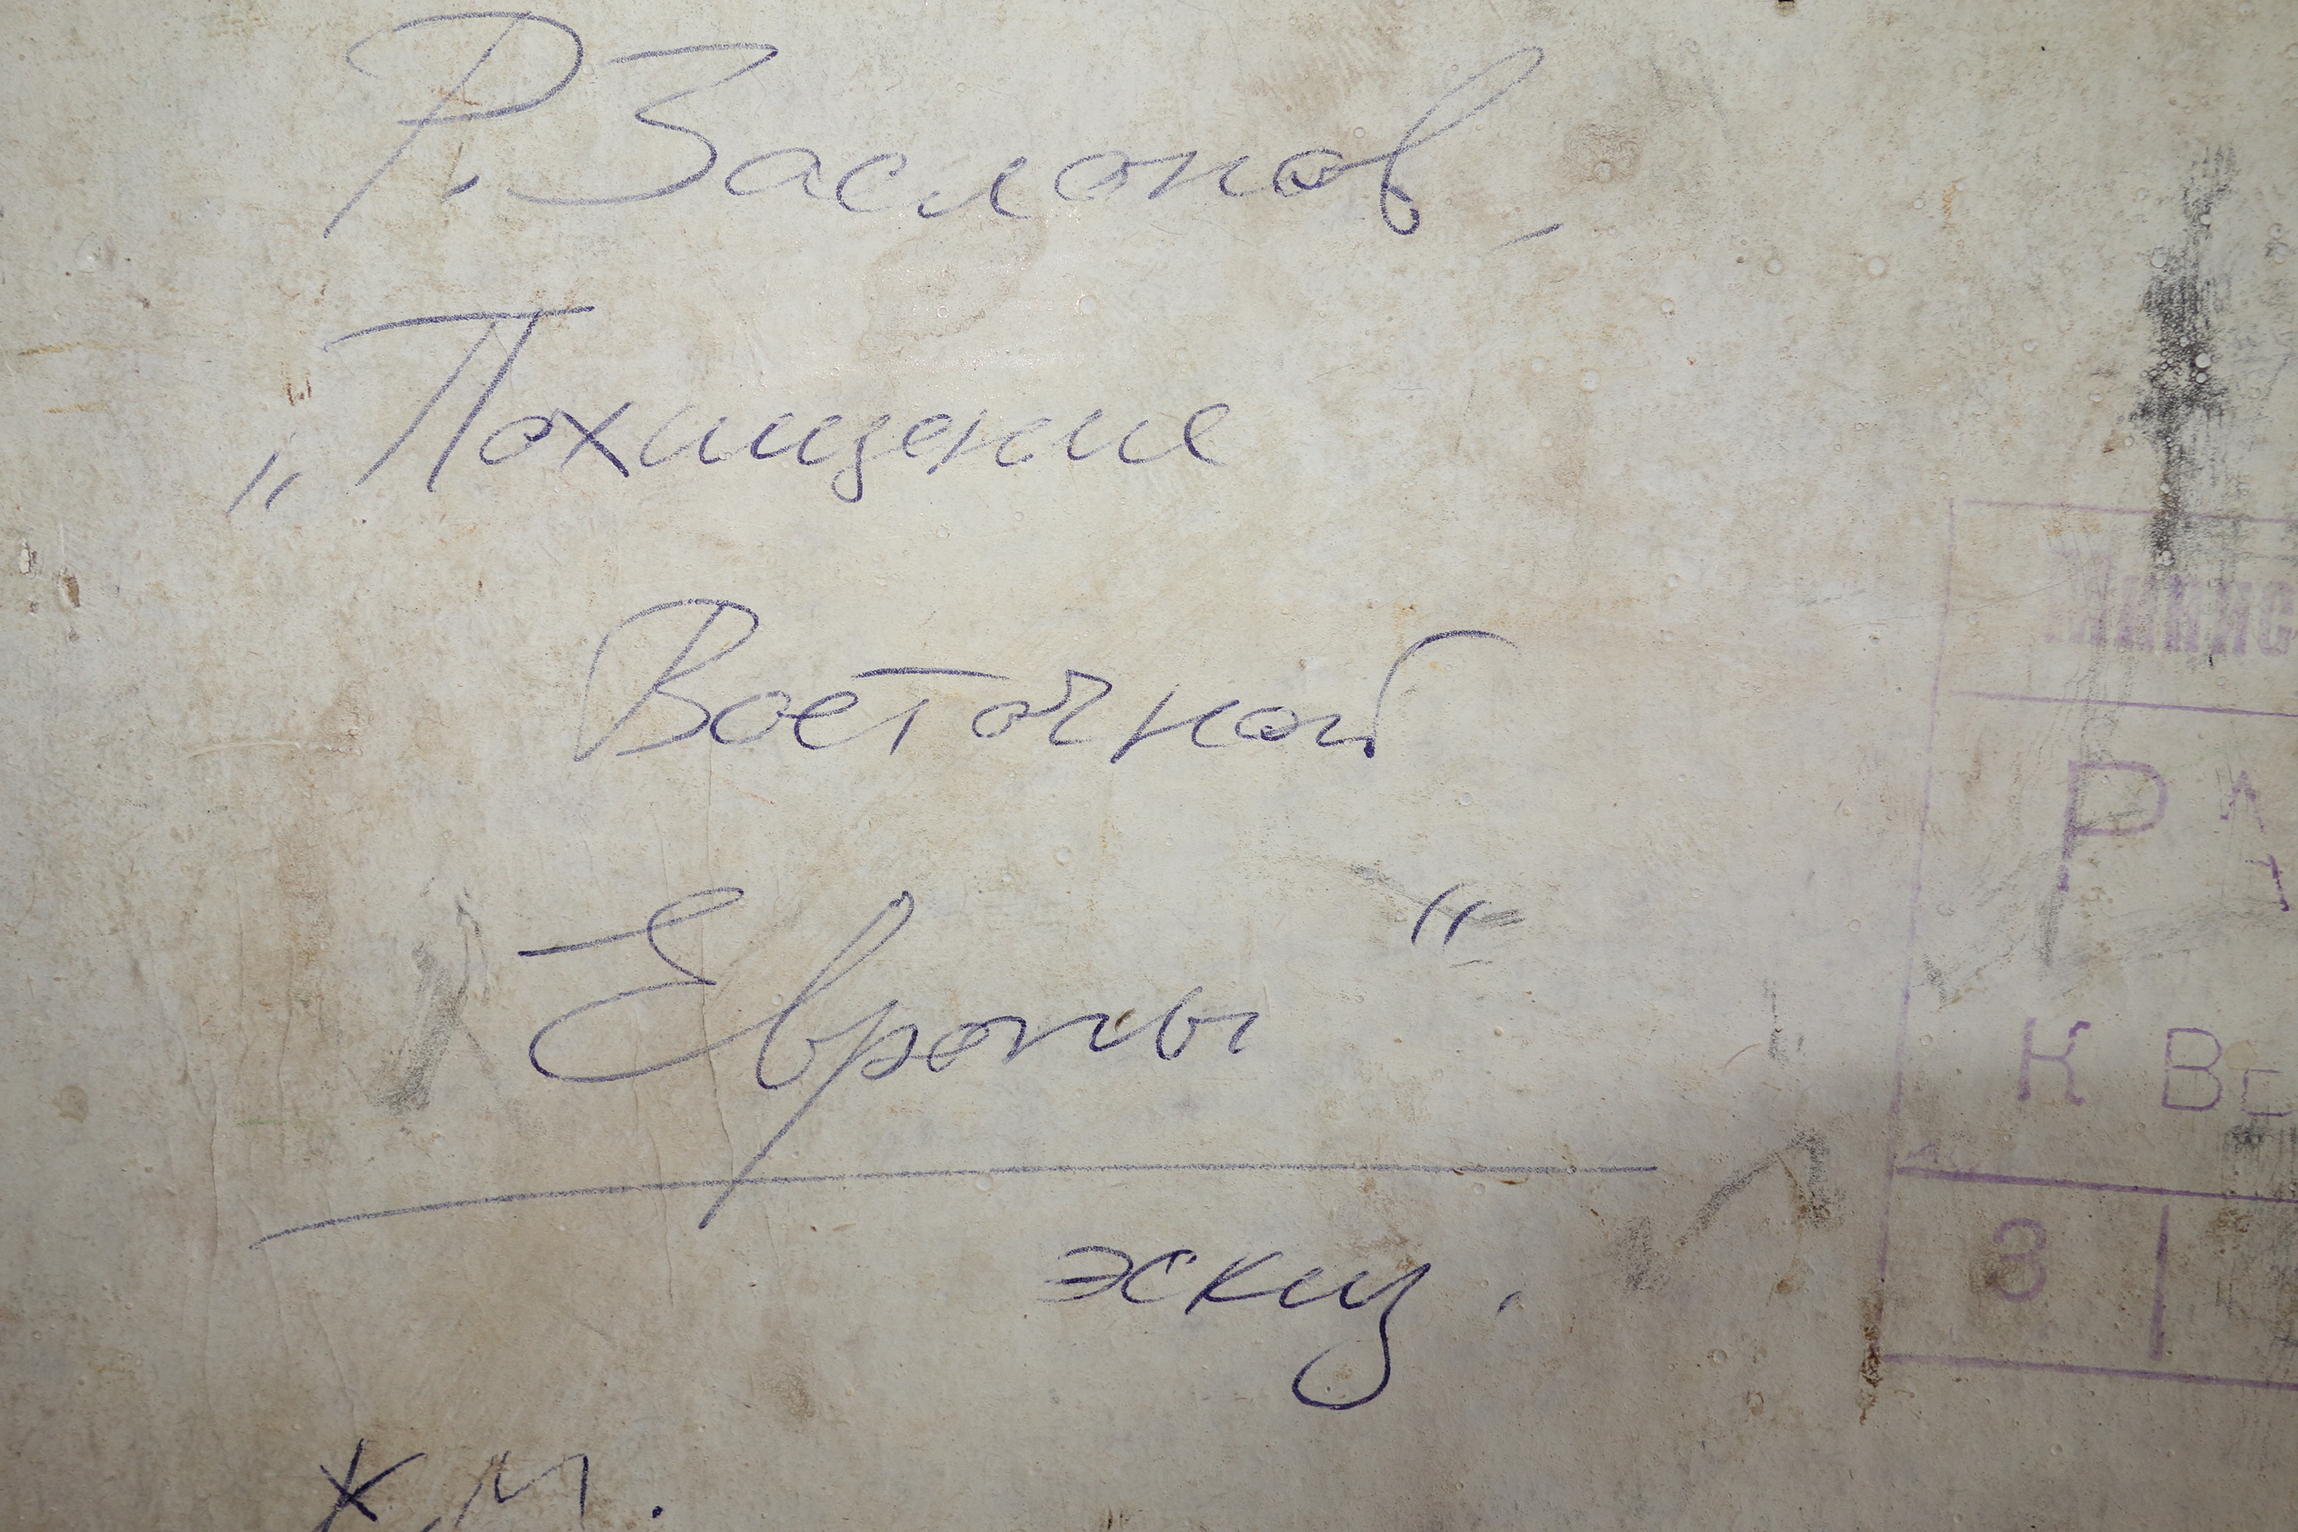 Р. Заслонов,
„Похищение
Восточной
Европы“
эскиз.
х.м.
Минис
Р
К ВЕ
3